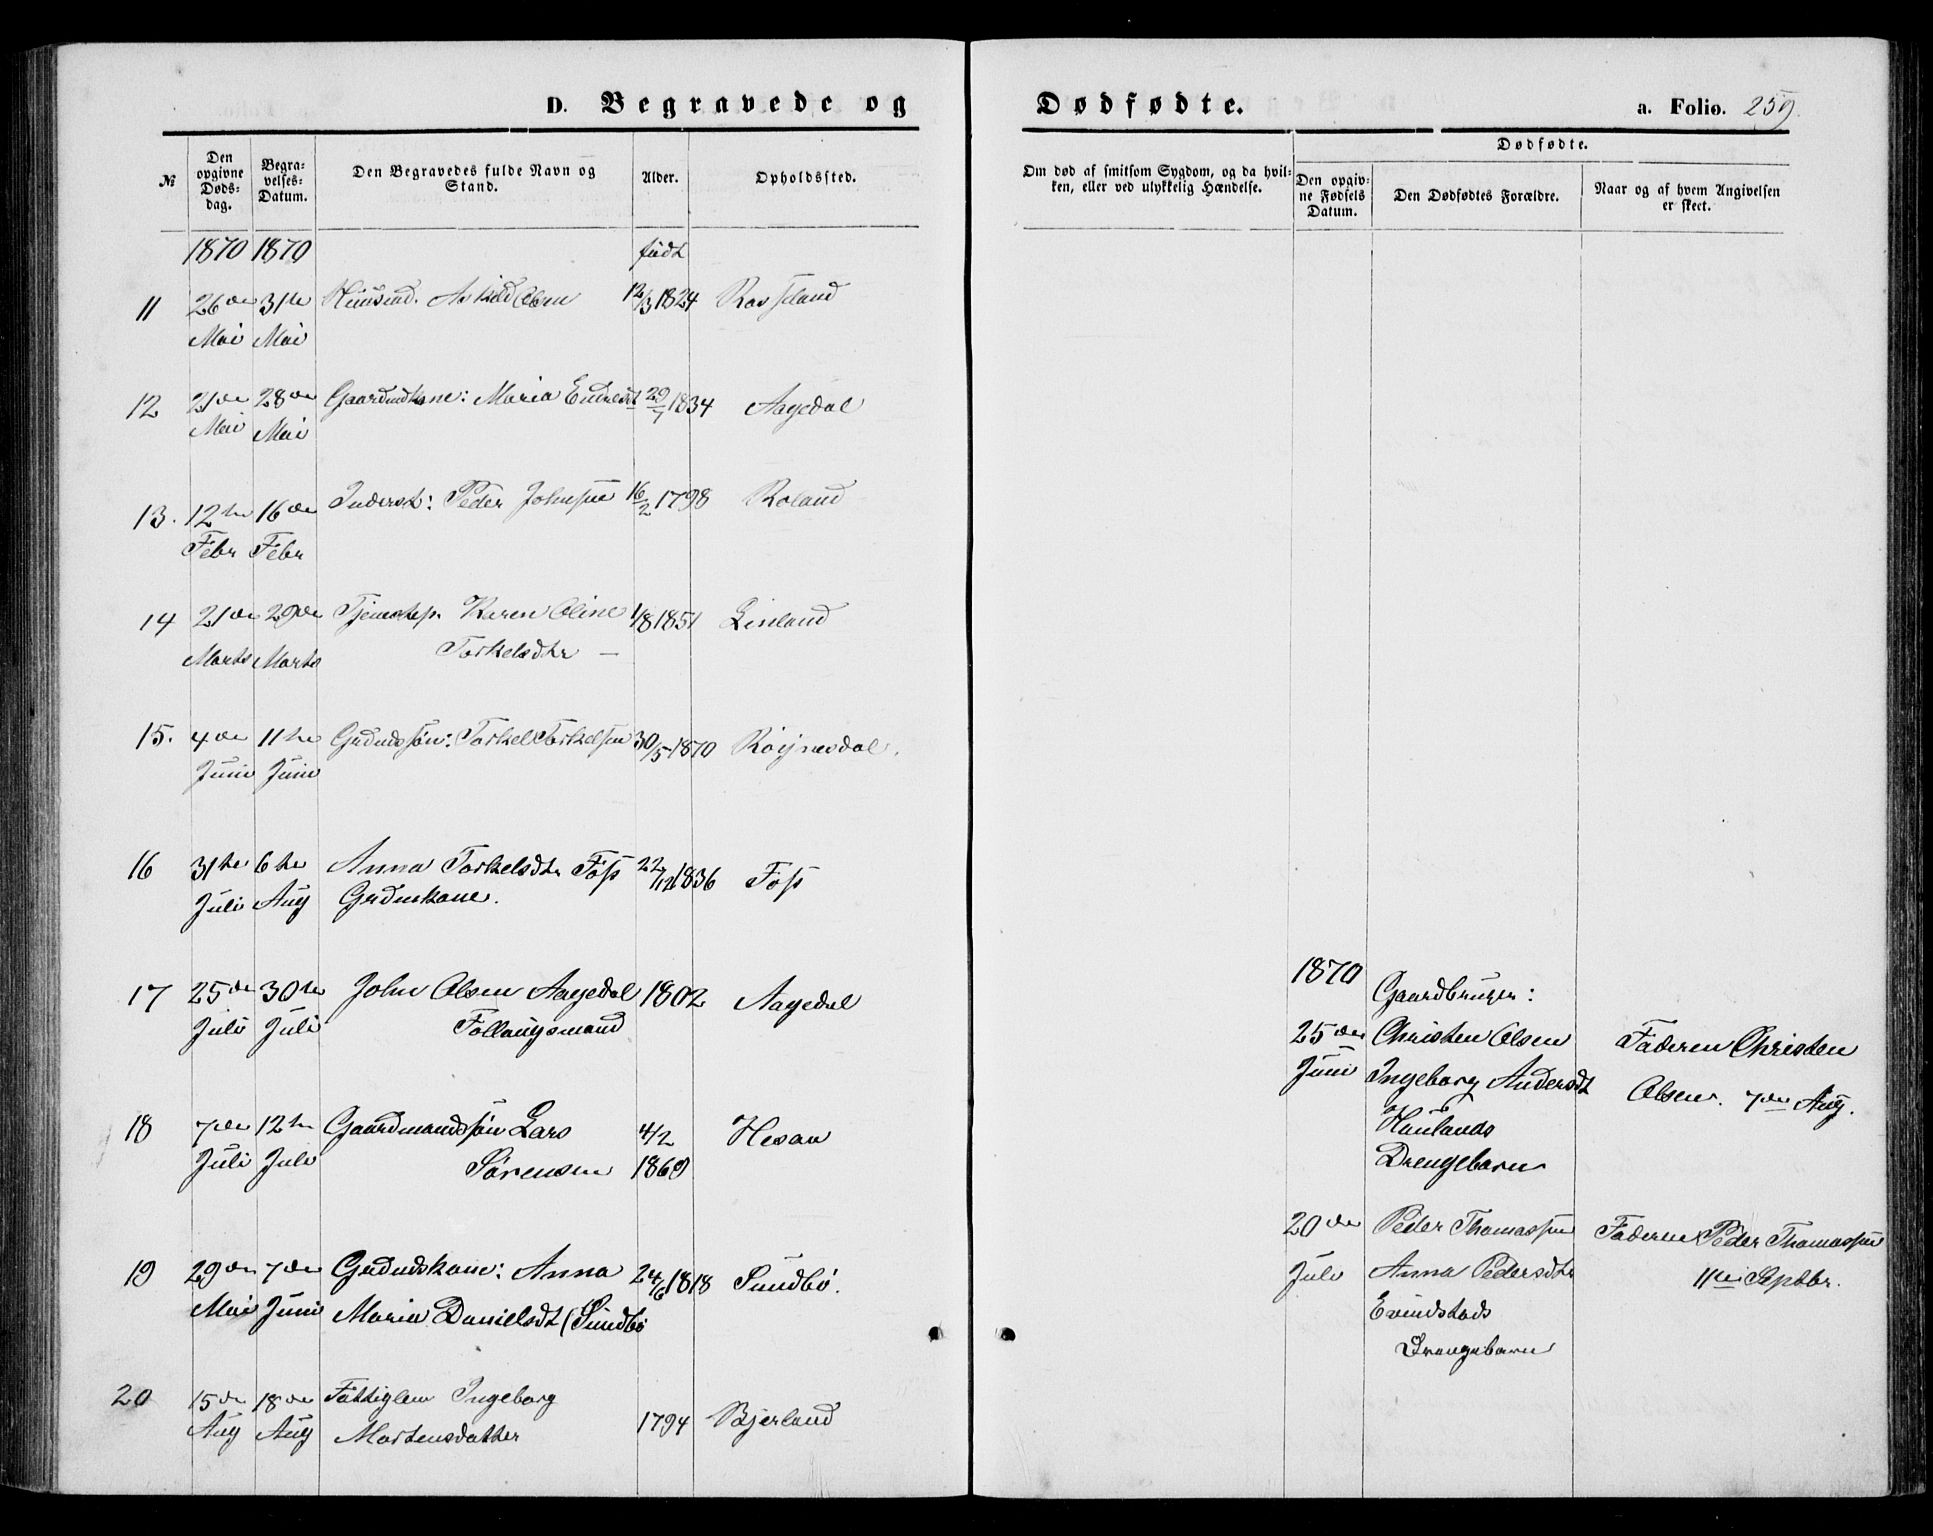 D. Begravede og
Dødfødte.
a. Folio. 259.
№
Den opgivne Døds-dag.
Begra-velses-Datum.
Den Begravedes fulde Navn og Stand.
Alder.
Opholdssted.
Om død af smitsom Sygdom, og da hvil-ken, eller ved ulykkelig Hændelse.
Dødfødte.
Den opgiv-ne Fødsels Datum.
Den Dødfødtes Forældre.
Naar og af hvem Angivelsen er skeet.
1870 1870 født
11 26de 31te Huusmd. Askild Olsen 12/3 1824 Rossland
Mai Mai
12 21de 28de Gaardmdkone: Maria Endresdt 29/7 1834 Aagedal
Mai Mai
13. 12te 16de Inderst: Peder Johnsen 16/2 1798 Roland
Febr Febr
14 21de 29de Tjenestep. Karen Oline 1/8 1851 Linland
Marts Marts Torkelsdtr —
15. 4de 11te Grdmdssøn: Torkel Torkelsen 30/5 1870 Røinesdal.
Juni Juni
16 31te 6te Anna Torkelsdtr Foss 22/12 1836 Foss
Juli Aug Grdmkone.
17 25de 30te John Olsen Aagedal 1802 Aagedal
Juli Juli Follaugsmand
18 7de 12te Gaardmandssøn Lars 4/2 Hesaa
Juli Juli Sørensen 1869
19 29de 7de Grdmdskone: Anna 24/6 1818 Sundbø.
Mai Juni Maria Danielsdt (Sundbø
20 15de 18de Fattiglem Ingeborg
Aug Aug Mortensdatter 1794 Bjerland
1870 Gaardbruger:
25de Christen Olsen Faderen Christen
Juni Ingeborg Andersdt Olsen. 7de Aug.
Haulands
Drengebarn
20de Peder Thomassen Faderen Peder Thomassen
Juli Anna Pedersdtr 11te Septbr.
Evindstads
Drengebarn